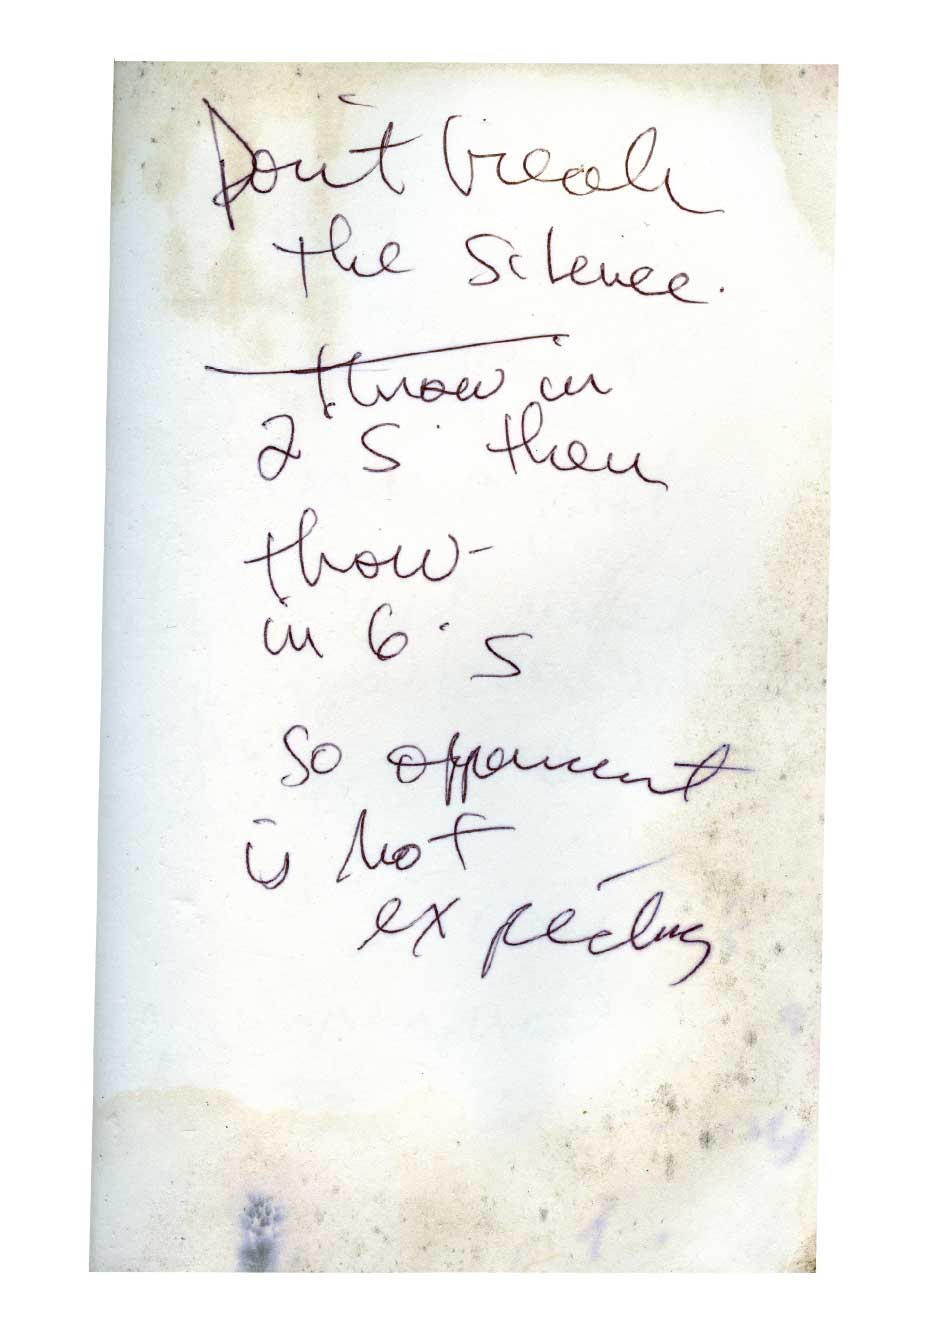 Don't break
the silence.
throw in
2 S then
throw-
in 6. S
so opponent
is not
expecting